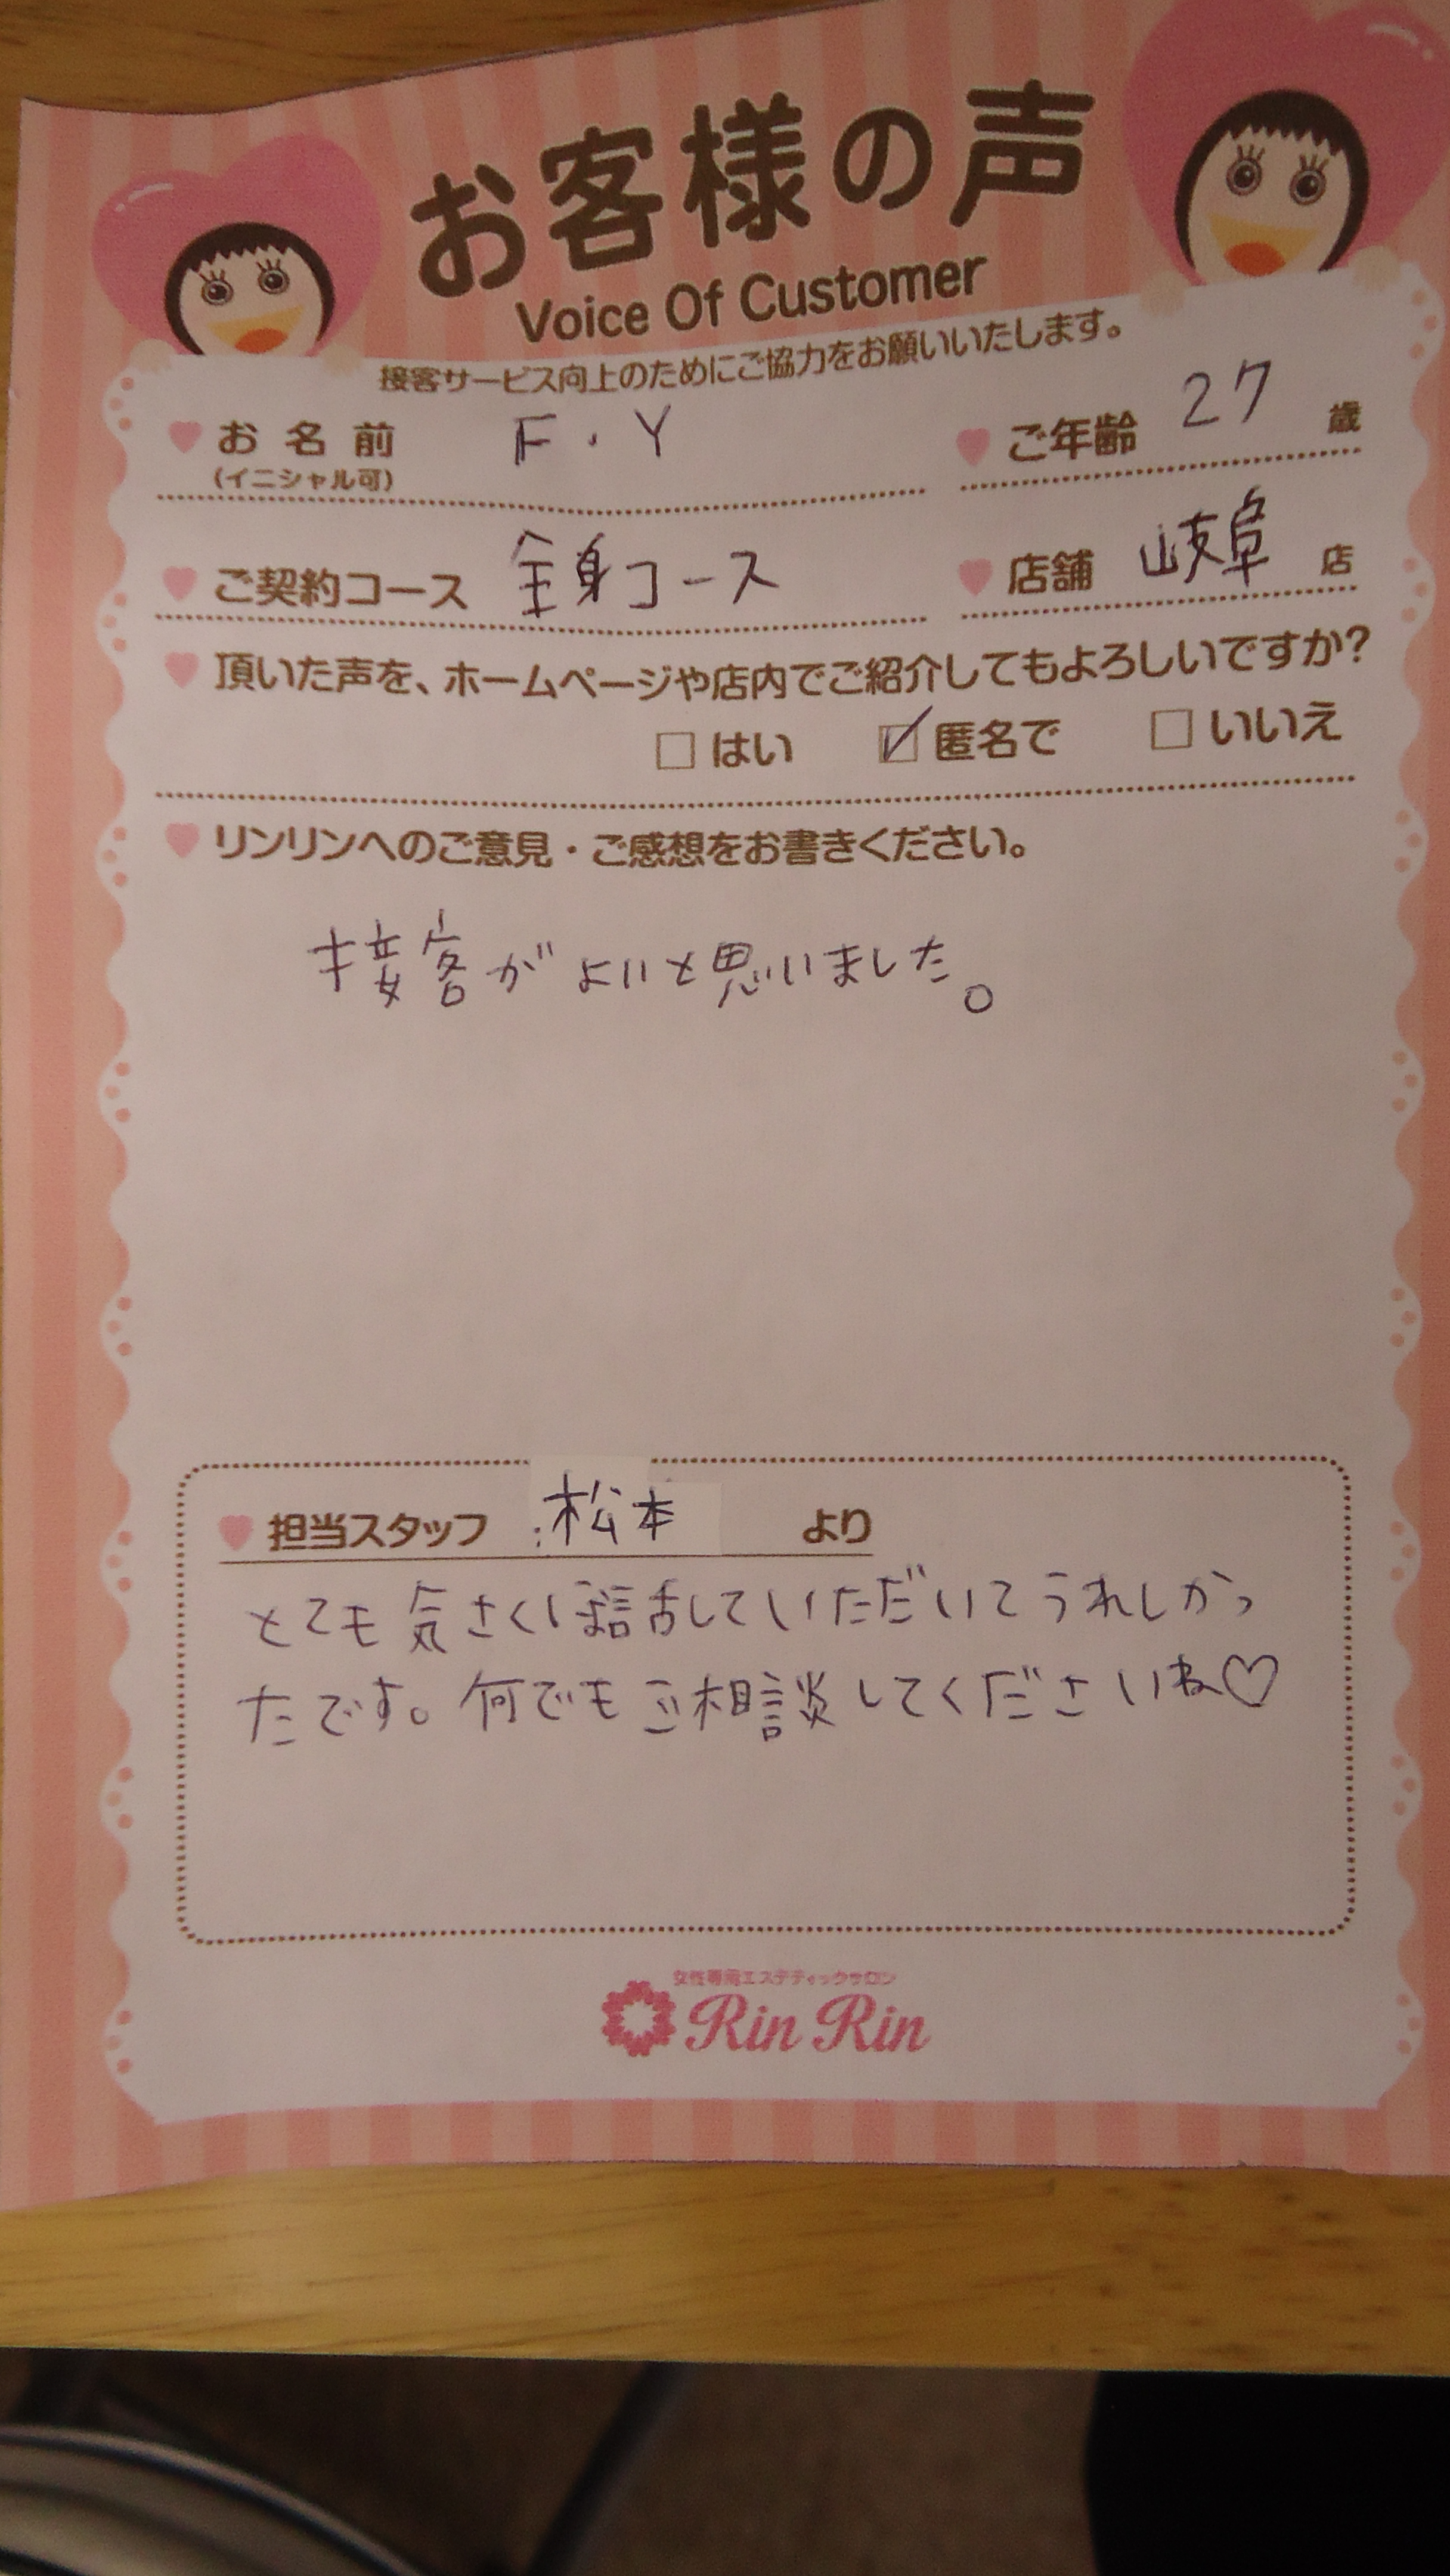 お客様の声
Voice Of Customer
接客サービス向上のためにご協力をお願いいたします。
お名前 F.Y ご年齢 27 歳
(イニシャル可)
ご契約コース 全身コース 店舗 岐阜 店
頂いた声を、ホームページや店内でご紹介してもよろしいですか?
はい 匿名で いいえ
リンリンへのご意見・ご感想をお書きください。
接客がよいと思いました。
担当スタッフ 松本 より
とても気さくに話していただいてうれしかっ
たです。何でもご相談してくださいね♡
女性専用エステティックサロン
Rin Rin